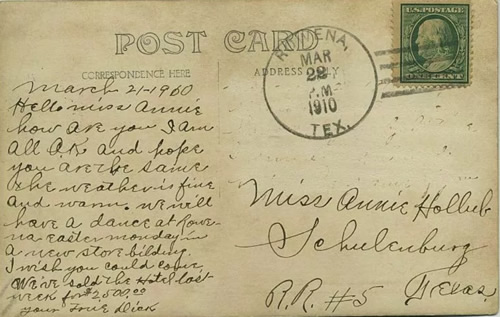 POST CARD
CORRESPONDENCE HERE
ADDRESS ONLY
ROWENA,
MAR
22
P.M.
1910
TEX.
U.S. POSTAGE
ONE CENT
March 21-1900
Hello miss Annie
how are you I am
all O.K. and hope
you are the same
the weather is fine
and warm. we will
have a dance at Rowe-
na easter monday in
a new store bilding.
I wish you could come
We've sold the Hotel last
week for $2,500.00
your True Dick
Miss Annie Hollub
Schulenburg
Texas.
R.R. #5